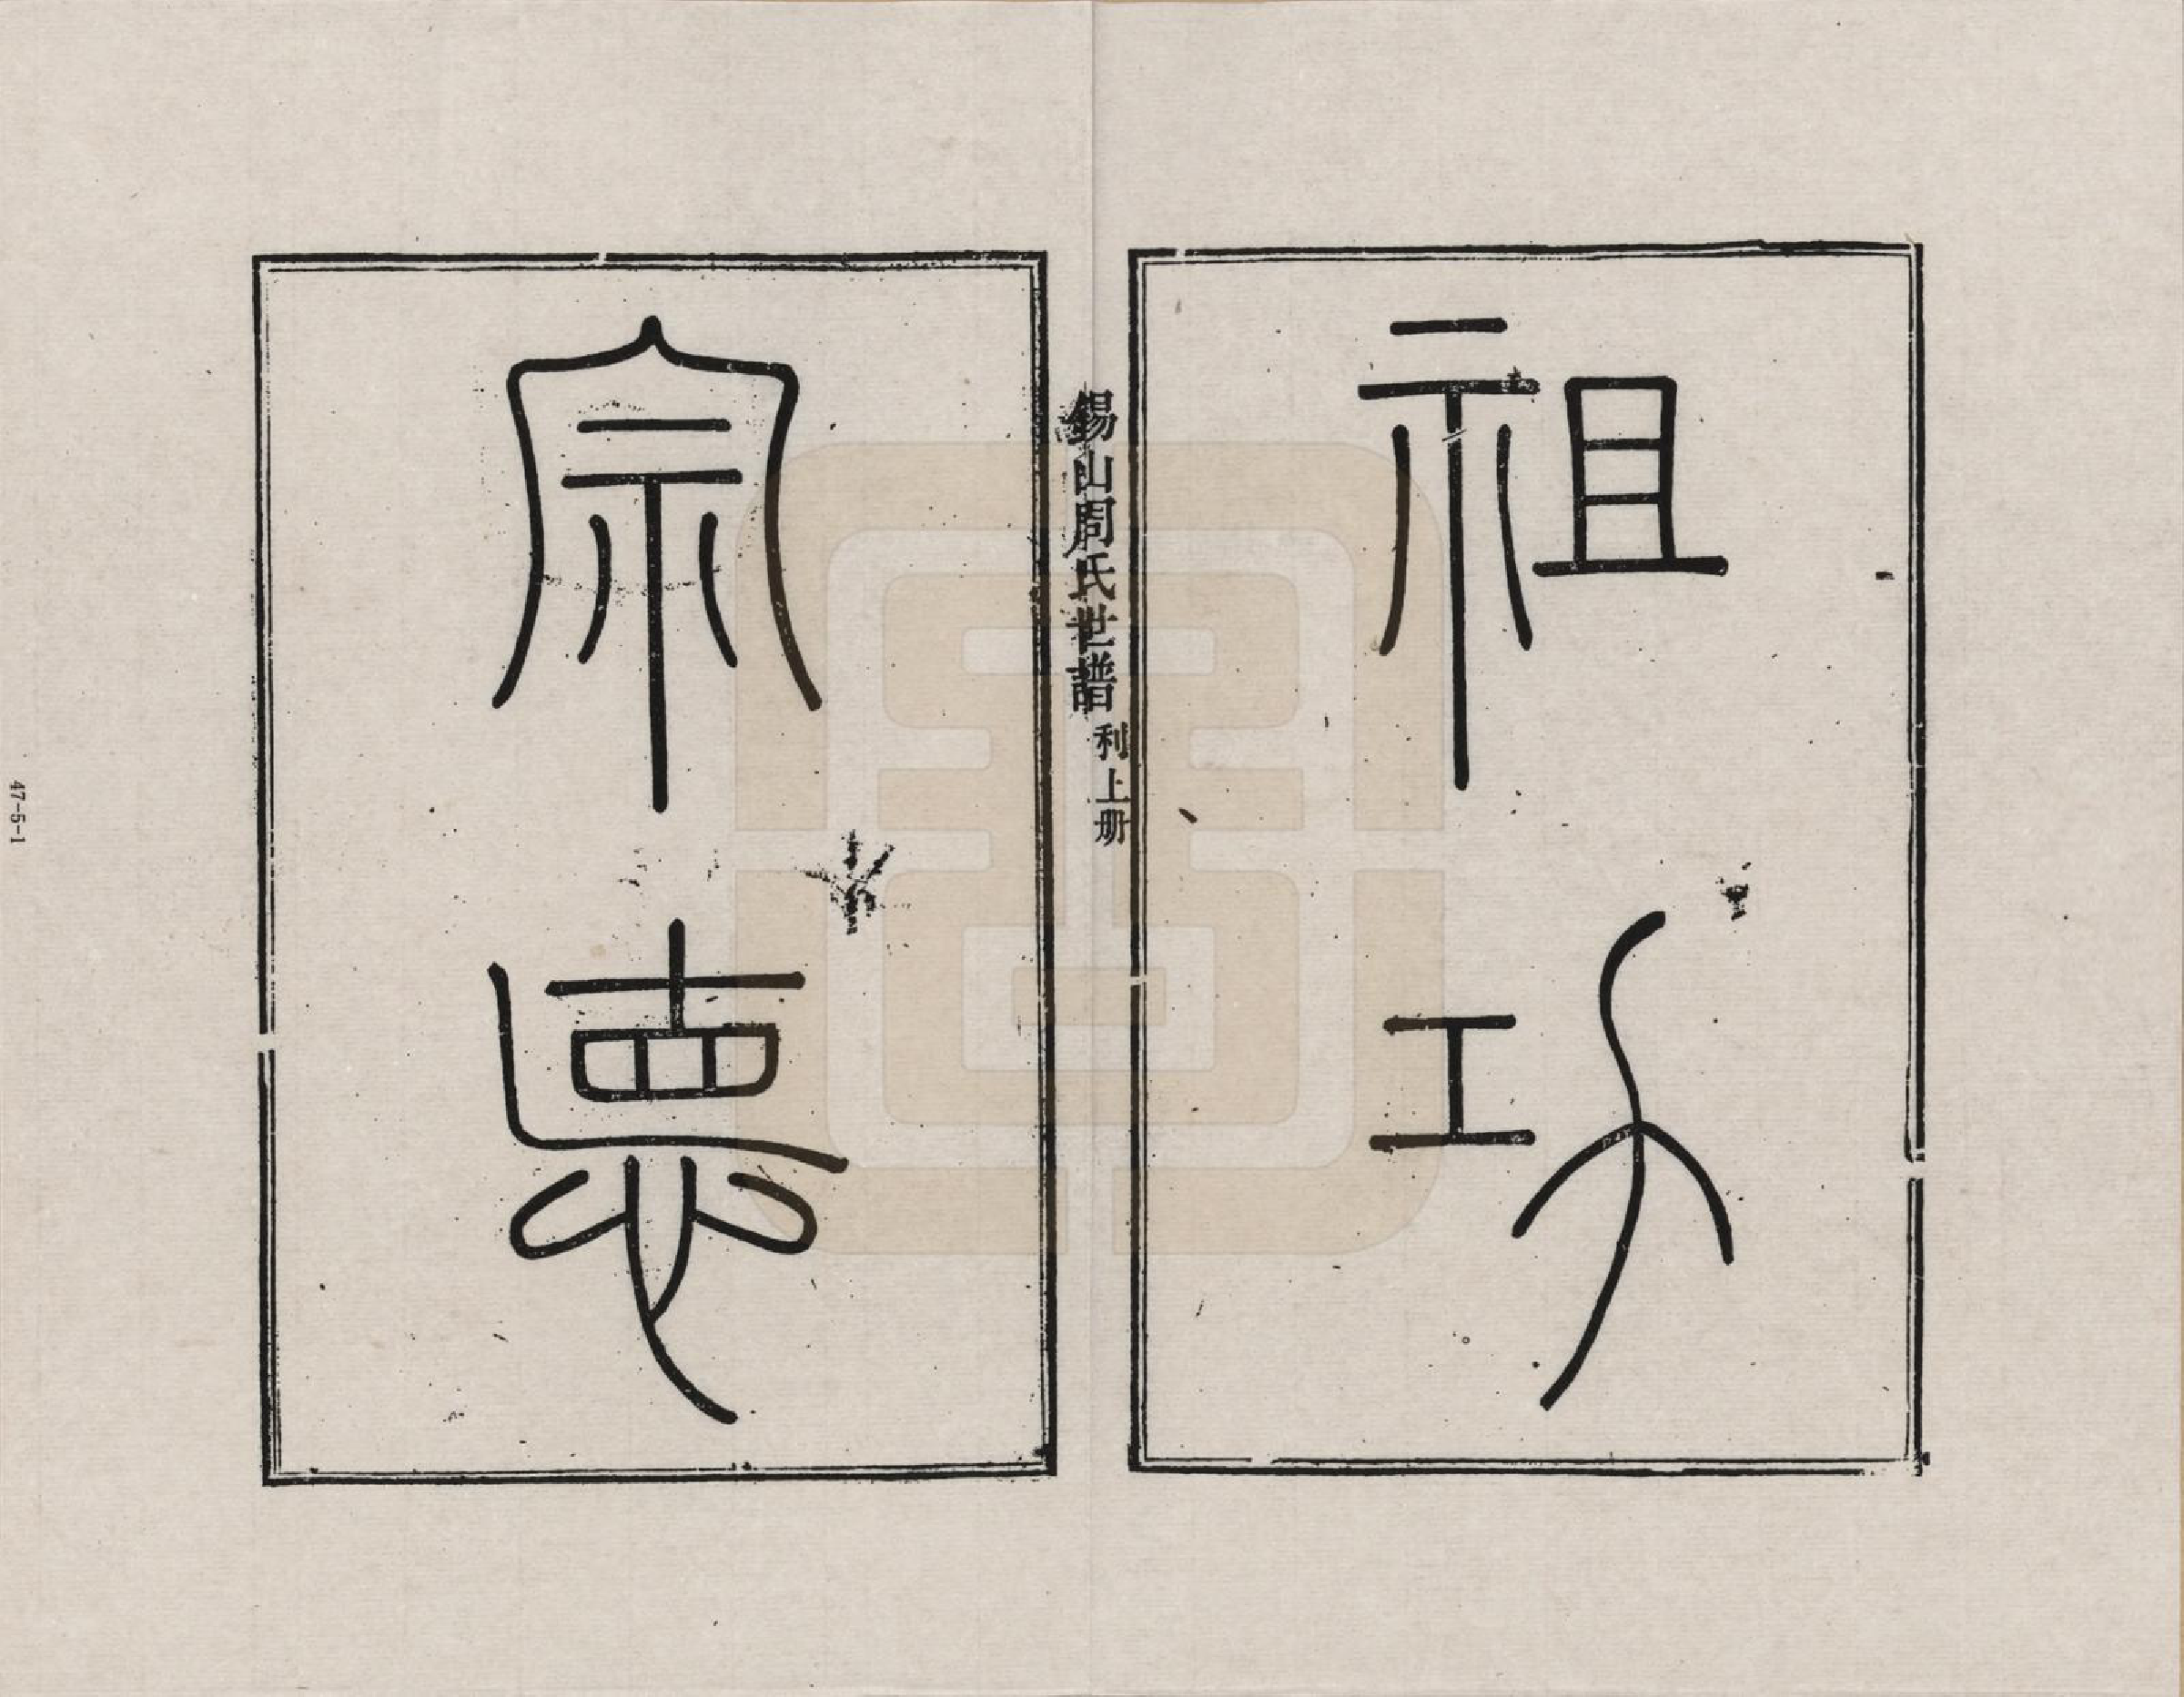 祖功
錫山周氏世譜 利上册
宗悳
47-5-1